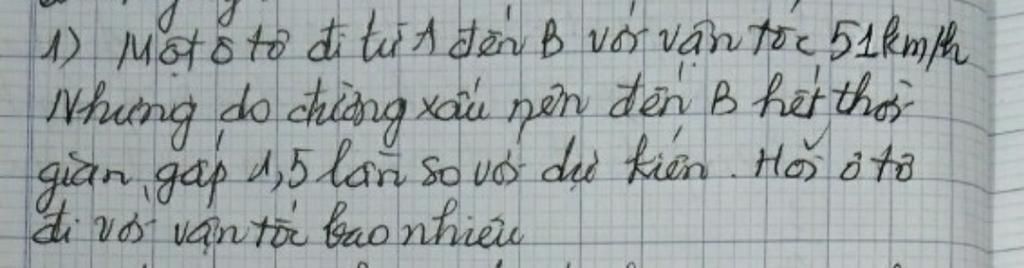 1) Một ô tô đi từ A đến B với vận tốc 51km/h
Nhưng do đường xấu nên đến B hết thời
gian gấp 1,5 lần so với dự kiến. Hỏi ô tô
đi với vận tốc bao nhiêu